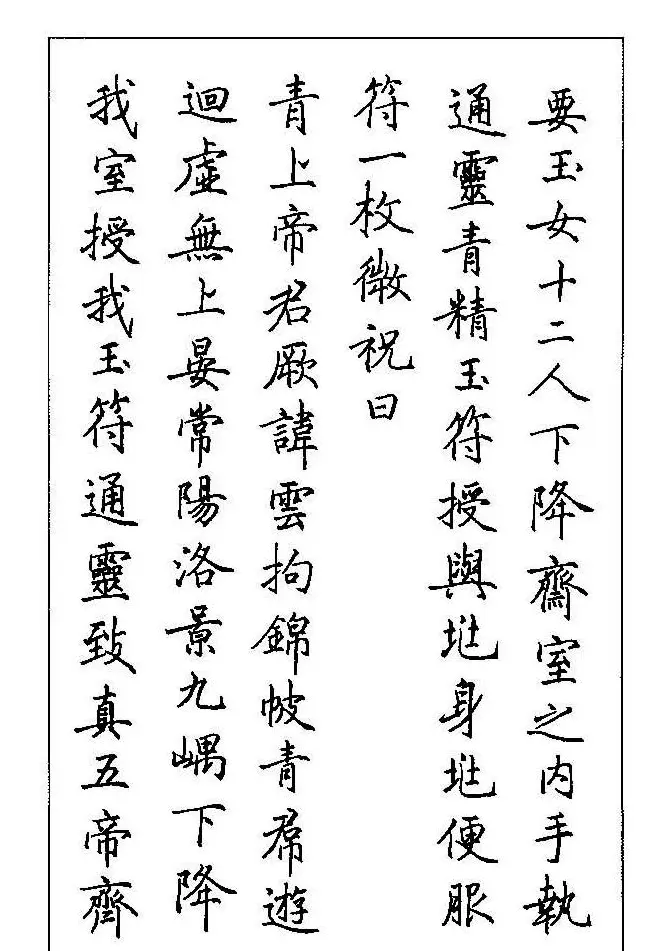 要玉女十二人下降齋室之内手執
通靈青精玉符授與兆身兆便服
符一枚微祝曰
青上帝君厥諱雲拘錦帔青帬遊
迴虛無上晏常陽洛景九嵎下降
我室授我玉符通靈致真五帝齊